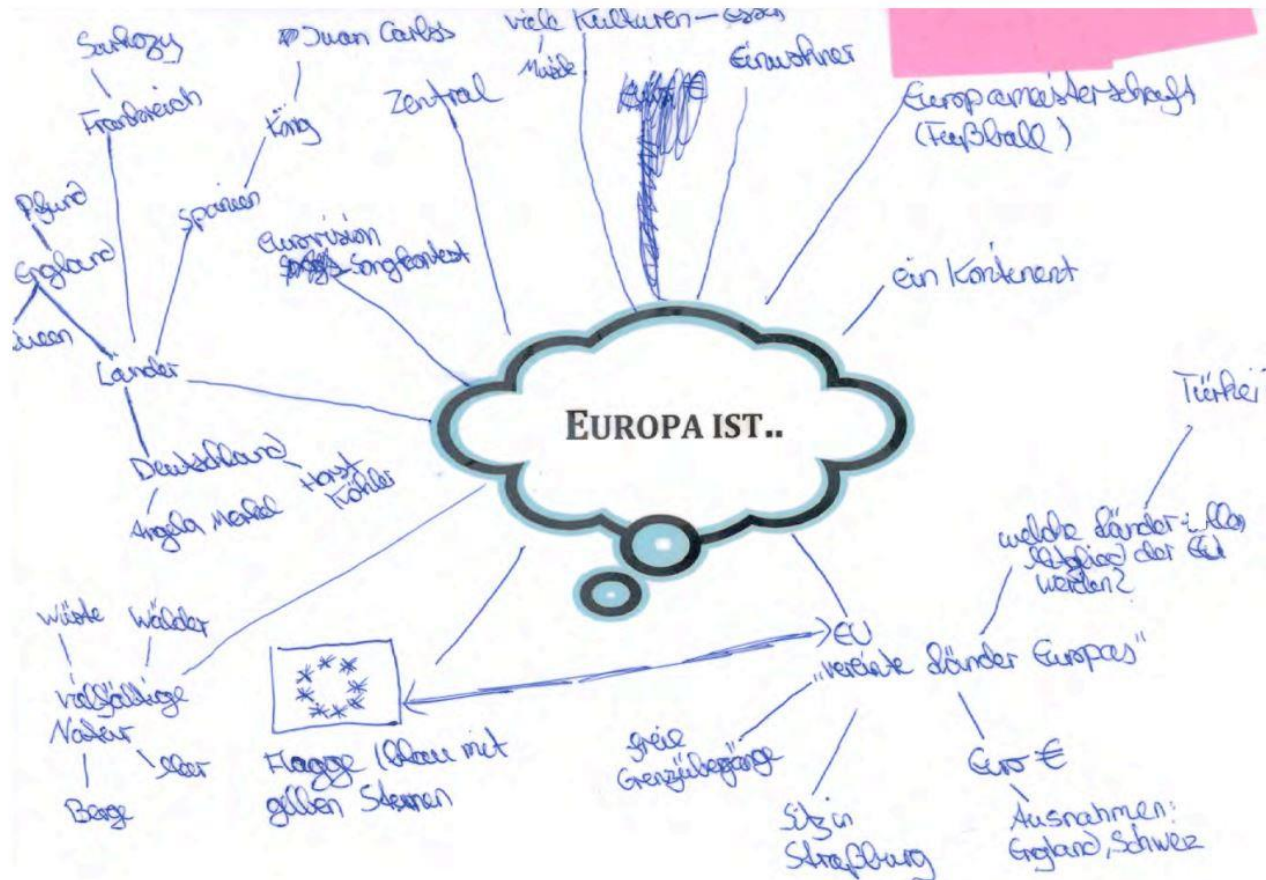 Sarkozy
Frankreich
Juan Carlos
König
Spanien
Pfund
England
Queen
Länder
Deutschland
Horst
Köhler
Angela Merkel
Eurovision
Songkontest
Zentral
viele Kulturen – Essen
Musik
Euro €
Einwohner
Europameisterschaft
(Fußball)
ein Kontinent
EUROPA IST..
Türkei
welche Länder
Mitglied der EU
werden?
EU
„vereinte Länder Europas"
freie
Grenzübergänge
Sitz in
Straßburg
Euro €
Ausnahmen:
England, Schweiz
Flagge (blau mit
gelben Sternen
Wüste
Wälder
vielfältige
Natur
Meer
Berge